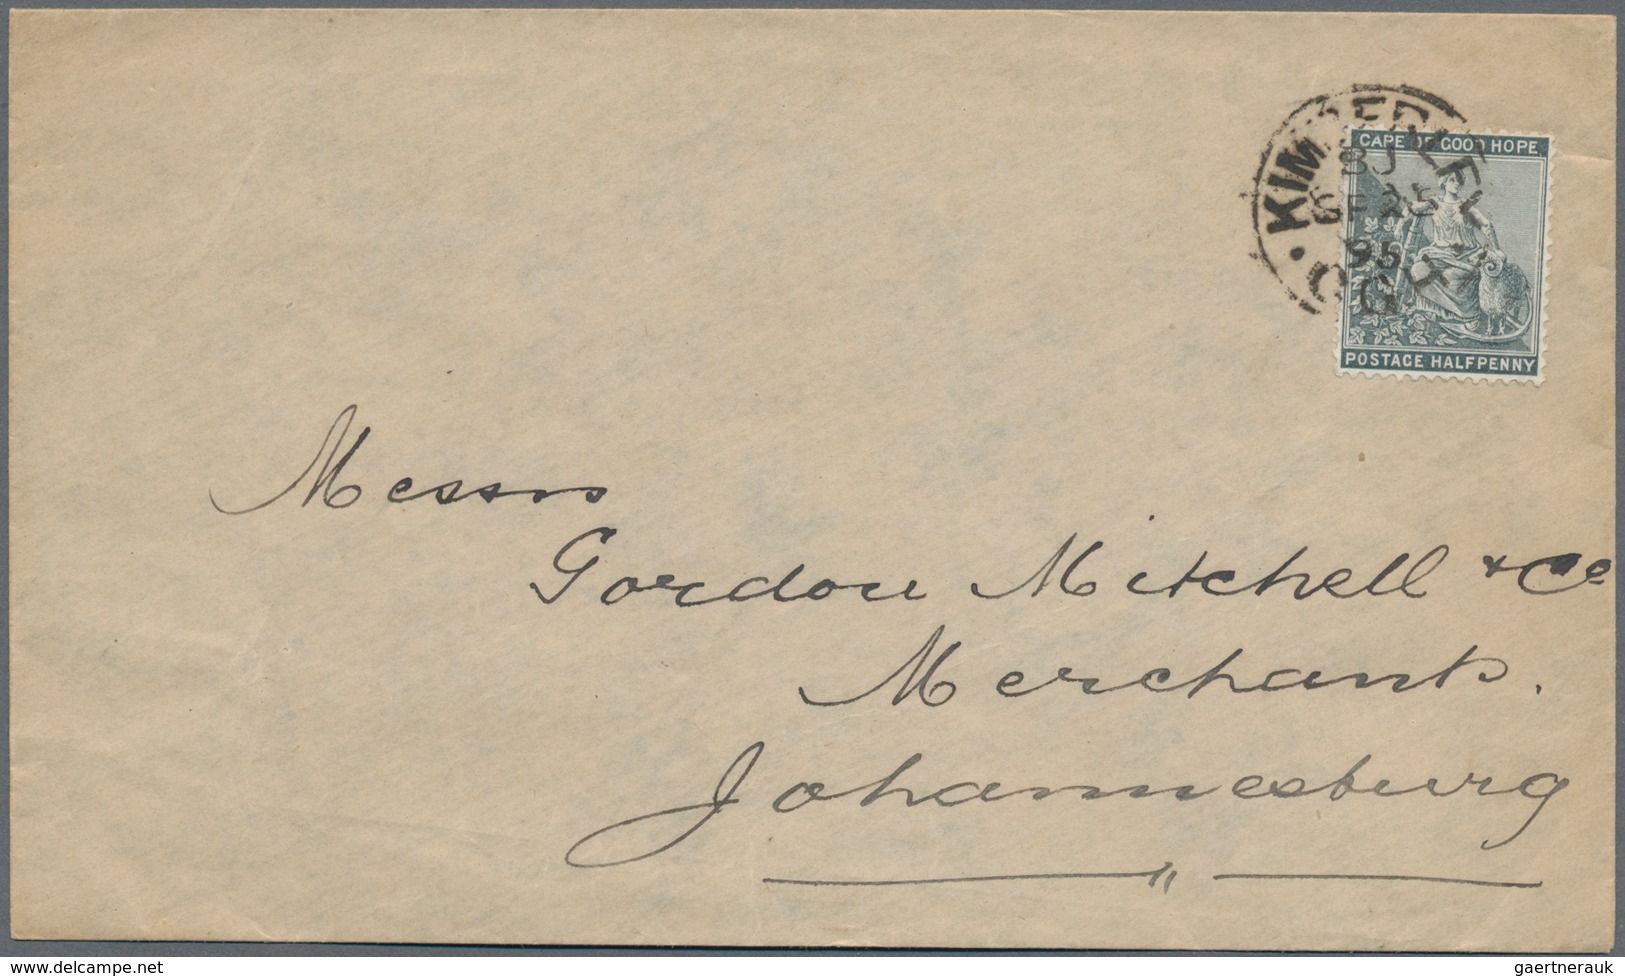 KIMBERLEY
CAPE OF GOOD HOPE
BJ
SE 25
95
C.G.H
POSTAGE HALFPENNY
Messrs
Gordon Mitchell & Co
Merchants.
Johannesburg
www.delcampe.net
gaertnerauk